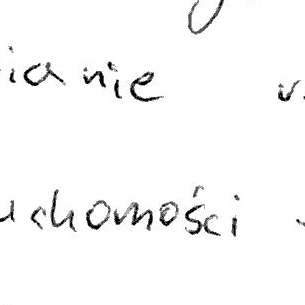 ianie
uchomości